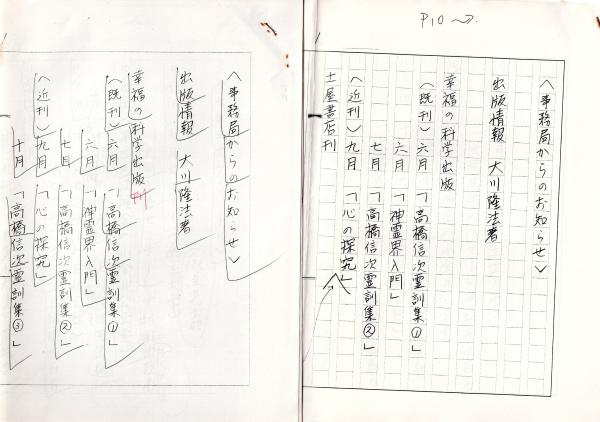 P10〜
〈事務局からのお知らせ〉
出版情報　大川隆法著
幸福の科学出版
〈既刊〉六月　「高橋信次霊訓集①」
六月　「神霊界入門」
七月　「高橋信次霊訓集②」
〈近刊〉九月　「心の探究」
土屋書店刊
〈事務局からのお知らせ〉
出版情報　大川隆法著
幸福の科学出版刊
〈既刊〉六月　「高橋信次霊訓集①」
六月　「神霊界入門」
七月　「高橋信次霊訓集②」
〈近刊〉九月　「心の探究」
十月　「高橋信次霊訓集③」